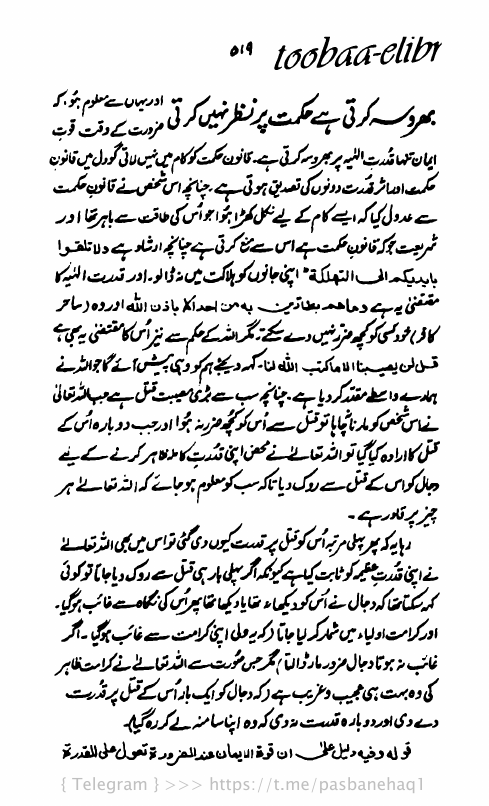 toobaa-elibr
۵۱۹
بھروسہ کرتی ہے حکمت پر نظر نہیں کرتی اور یہاں سے معلوم ہوا، کہ ضرورت کے وقت قوتِ
ایمان تنہا قدرتِ الٰہیہ پر بھروسہ کرتی ہے۔ قانونِ حکمت کو کام میں نہیں لاتی گو دل میں قانونِ
حکمت اور اثرِ قدرت دونوں کی تصدیق ہوتی ہے۔ چنانچہ اس شخص نے قانونِ حکمت
سے عدول کیا کہ ایسے کام کے لیے نکل کھڑا ہوا جو اُس کی طاقت سے باہر تھا اور
شریعت جو کہ قانونِ حکمت ہے اس سے منع کرتی ہے چنانچہ ارشاد ہے ولا تلقوا
بایدیکم الی التهلکة اپنی جانوں کو ہلاکت میں نہ ڈالو۔ اور قدرت الٰہیہ کا
مقتضیٰ یہ ہے وما هم بضارین به من احد الا باذن الله اور وہ (ساحر
کافر) خود کسی کو کچھ ضرر نہیں دے سکتے۔ مگر اللہ کے حکم سے نیز اُس کا مقتضی یہ بھی ہے
قل لن یصیبنا الا ما کتب الله لنا۔ کہہ دیجئے ہم کو وہی پیش آئے گا جو اللہ نے
ہمارے واسطے مقدر کر دیا ہے۔ چنانچہ سب سے بڑی مصیبت قتل ہے جب اللہ تعالیٰ
نے اس شخص کو مارنا چاہا تو قتل سے اُس کو کچھ ضرر نہ ہوا اور جب دوبارہ اُس کے
قتل کا ارادہ کیا گیا تو اللہ تعالیٰ نے محض اپنی قدرت کاملہ ظاہر کرنے کے لیے
دجال کو اس کے قتل سے روک دیا تاکہ سب کو معلوم ہو جائے کہ اللہ تعالیٰ ہر
چیز پر قادر ہے۔
رہا یہ کہ پھر پہلی مرتبہ اُس کو قتل پر قدرت کیوں دی گئی تو اس میں بھی اللہ تعالیٰ
نے اپنی قدرتِ عظیمہ کو ثابت کیا ہے کیونکہ اگر پہلی بار ہی قتل سے روک دیا جاتا تو کوئی
کہہ سکتا تھا کہ دجال نے اُس کو دیکھا نہ تھا یا دیکھا تھا پھر اُس کی نگاہ سے غائب ہو گیا۔
اور کرامت اولیاء میں شمار کر لیا جاتا (کہ یہ ولی اپنی کرامت سے غائب ہو گیا۔ اگر
غائب نہ ہوتا دجال ضرور مار ڈالتا) مگر جس صورت سے اللہ تعالیٰ نے کرامت ظاہر
کی وہ بہت ہی عجیب و غریب ہے (کہ دجال کو ایک بار اُس کے قتل پر قدرت
دے دی اور دوبارہ قدرت نہ دی کہ وہ اپنا سا منہ لے کر رہ گیا)۔
قوله وفیه دلیل علی ان قوة الایمان عند الضرورة تعول علی القدرة
{ Telegram } >>> https://t.me/pasbanehaq1